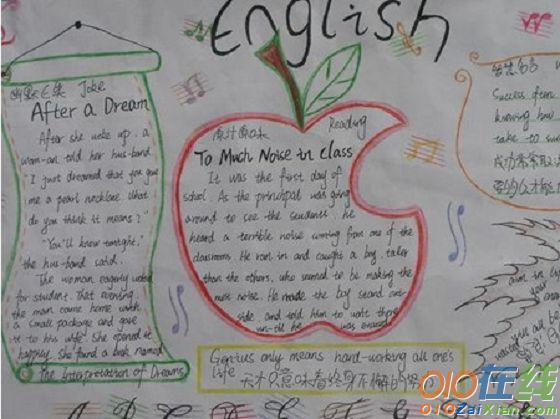 English
Joke
After a Dream
After she woke up, a
wom-an told her hus-band
"I just dreamed that you gave
me a pearl necklace. What
do you think it means?"
"You'll know tonight,"
the hus-band said.
The woman eagerly waited
for student. That evening,
the man came home with
a small package and gave
it to his wife. She opened it
happily. She found a book named
the Interpretation of Dreams
原汁原味 Reading
To Much Noise in Class
It was the first day of
school. As the principal was going
around to see the students, he
heard a terrible noise coming from one of the
classrooms. He ran in and caught a boy, taller
than the others, who seemed to be making the
most noise. He made the boy stand out-
side, and told him to wait there
un-till he was excused
Genius only means hard-working all one's
life
天才只意味着终身不懈的努力
Success often
knowing how
take to suc
成功常常取决
要的么才能
aim in
010在线
010ZaiXian.com